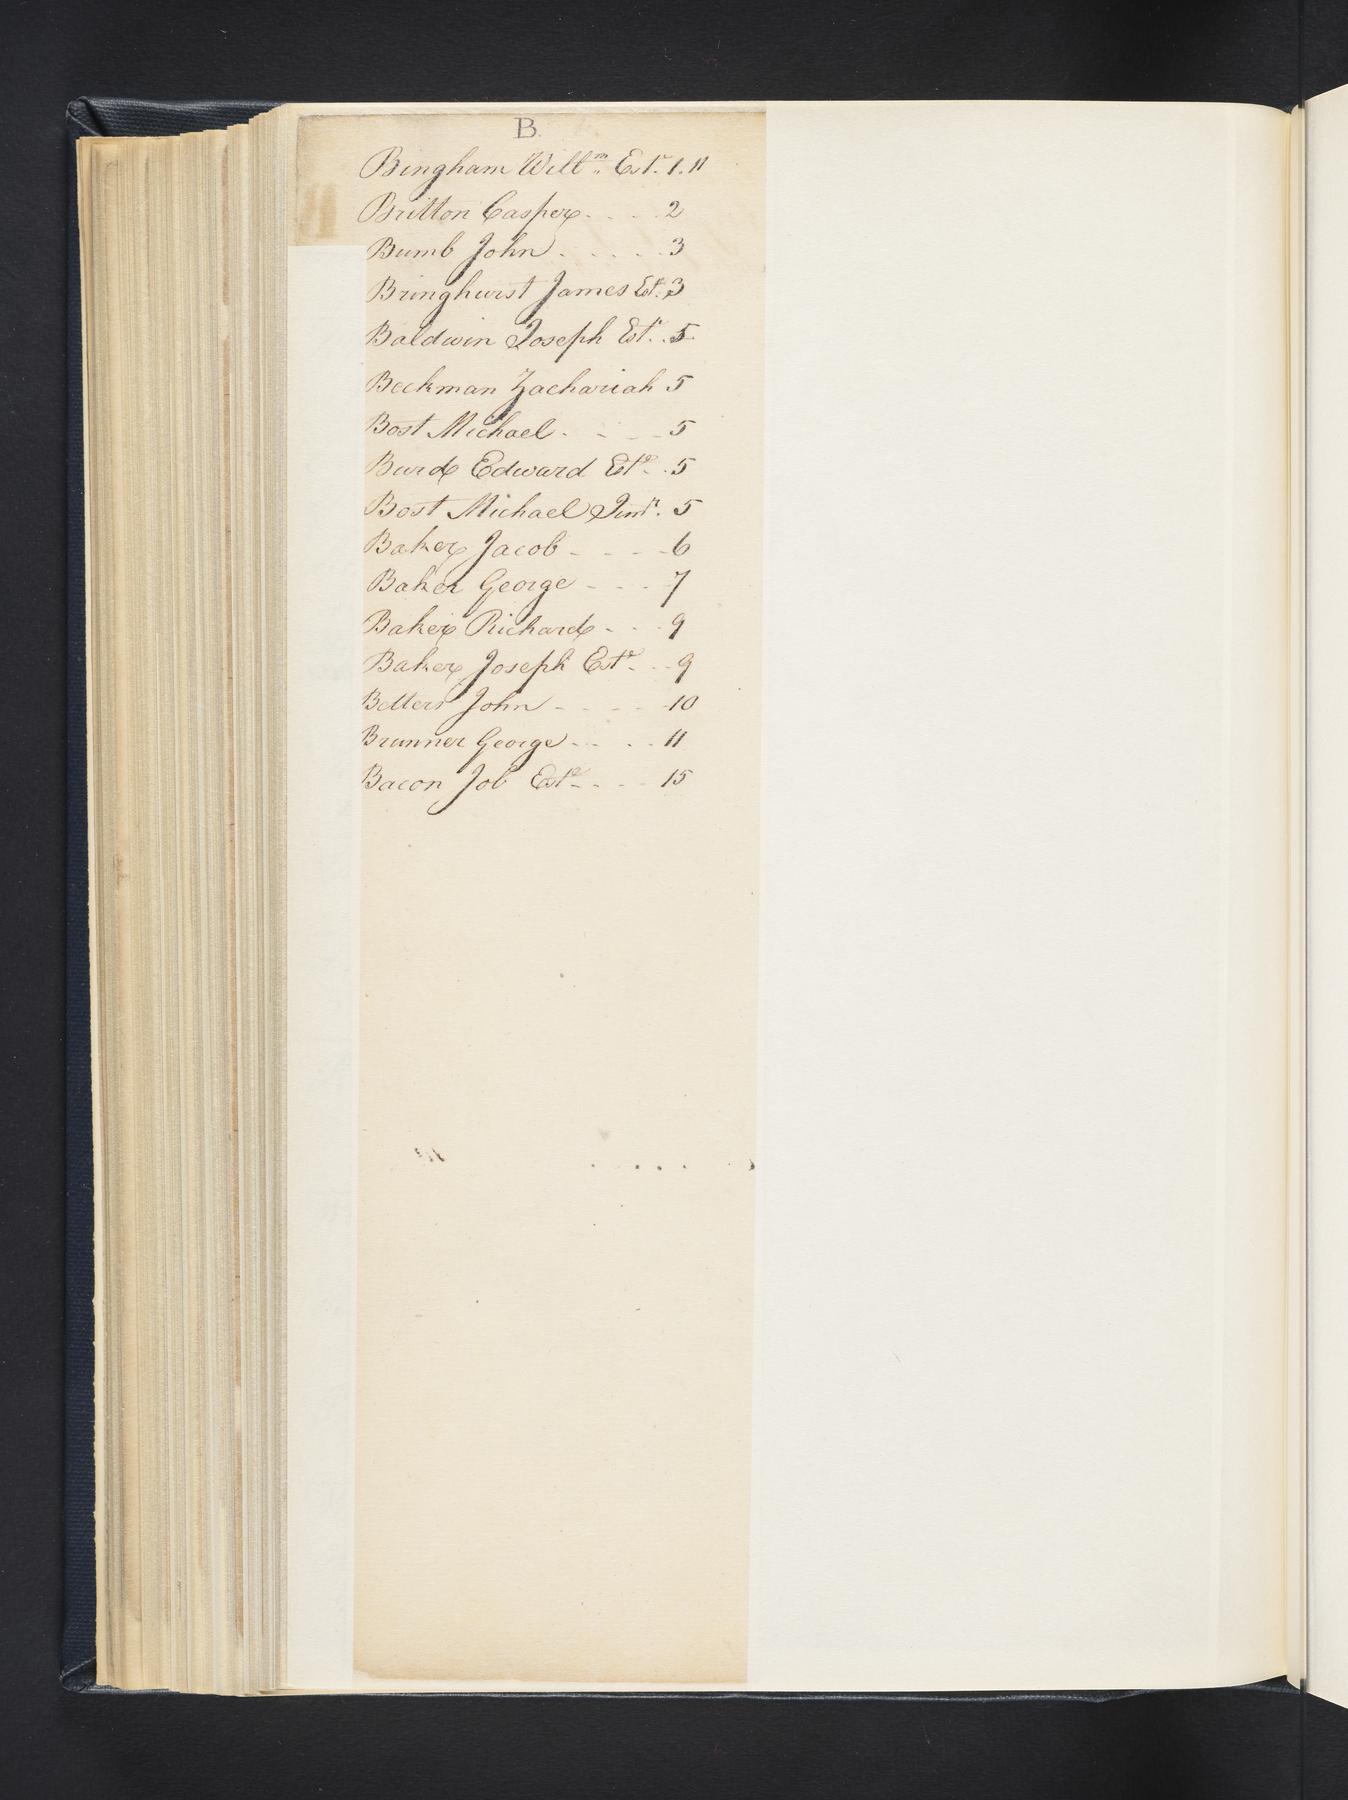 B.
Bingham Willm Estr. 1.11
Britton Casper . . . . 2
Bumb John . . . . . . 3
Bringhurst James Est. 3
Baldwin Joseph Estr. . 5
Beckman Zachariah 5
Bost Michael . - - - 5
Burd Edward Ete - . 5
Bost Michael Junr. 5
Baker Jacob - - - - 6
Baker George - - - 7
Baker Richard - - - 9
Baker Joseph Este - - 9
Betters John - - - - - 10
Brunner George - - . - 11
Bacon Job Este - - - - 15